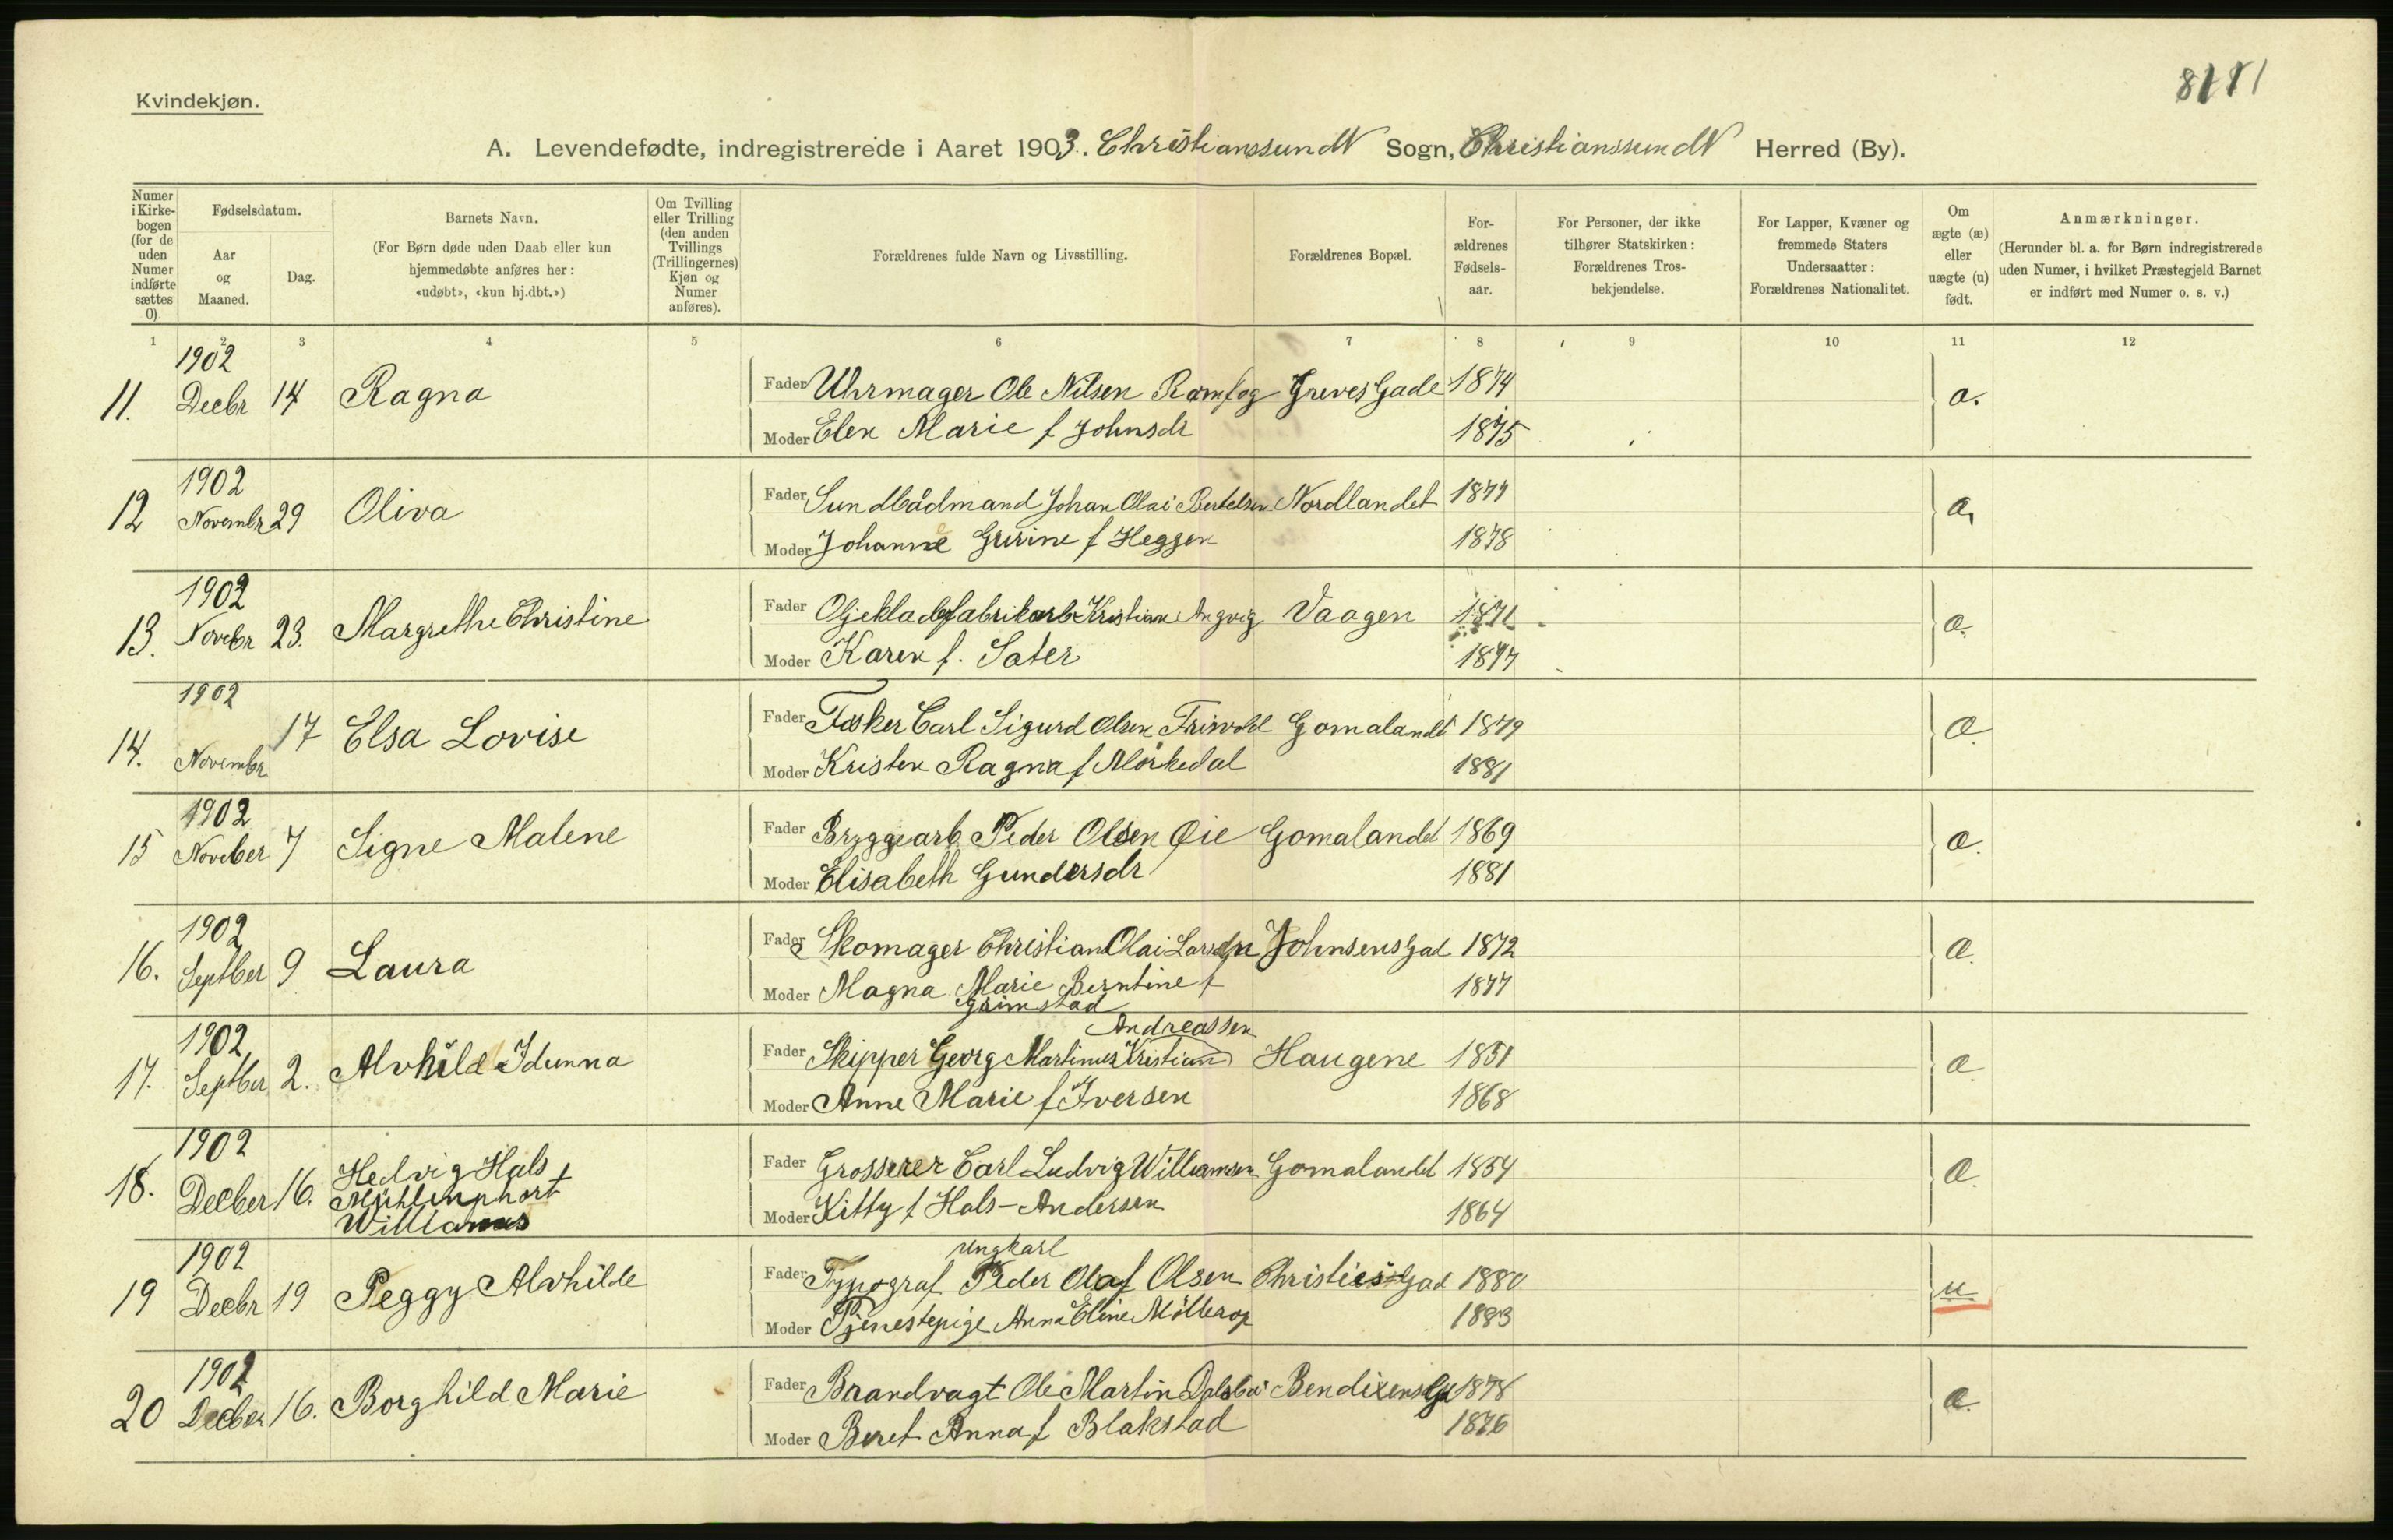 Kvindekjøn.
A. Levendefødte, indregistrerede i Aaret 1903. Christianssund N Sogn, Christianssund N Herred (By).
Numer i Kirkebogen (for de uden Numer indførte sættes 0)
Fødselsdatum.
Aar og Maaned.
Dag.
Barnets Navn.
(For Børn døde uden Daab eller kun hjemmedøbte anføres her: «udøbt», «kun hj.dbt.»)
Om Tvilling eller Trilling (den anden Tvillings (Trillingernes) Kjøn og Numer anføres).
Forældrenes fulde Navn og Livsstilling.
Forældrenes Bopæl.
Forældrenes Fødselsaar.
For Personer, der ikke tilhører Statskirken: Forældrenes Trosbekjendelse.
For Lapper, Kvæner og fremmede Staters Undersaatter: Forældrenes Nationalitet.
Om ægte (æ) eller uægte (u) født.
Anmærkninger.
(Herunder bl. a. for Børn indregistrerede uden Numer, i hvilket Præstegjeld Barnet er indført med Numer o. s. v.)
1 2 3 4 5 6 7 8 9 10 11 12
1902
11. Decbr 14 Ragna Fader Uhrmager Ole Nilsen Greves Gade 1874 a.
Moder Elen Marie f Johnsdr 1875
1902
12 Novembr 29 Oliva Fader Sundbådmand Johan Olai Bertelsen Nordlandet 1877 a,
Moder Johanne Gurine f Heggen 1878
1902
13. Novebr 23. Margrethe Christine Fader Kristian Angvig Vaagen 1871 a.
Moder Karen f. Sater 1877
1902
14. Novembr 17 Elsa Lovise Fader Carl Sigurd Olsen Gomalandt 1879 a.
Moder Kristen Ragna f Mörkedal 1881
1902
15 Noveber 7 Signe Malene Fader Bryggearb. Peder Olsen Øie Gomalandet 1869 a.
Moder Elisabeth Gundersdr 1881
1902
16. Septber 9 Laura Fader Skomager Christian Olai Johnsens Gad 1872 a.
Moder Magna Marie Berntine f 1877
Grimstad
1902 Andreassen
17. Septber 2. Alvhild Idunna Fader Skipper Georg Martinus Kristian Haugene 1851 a.
Moder Anne Marie f Iversen 1868
1902
18. Decber 16. Hedvig Hals Fader Grosserer Carl Ludvig Williamsen Gomalandet 1854 a.
Mühlenphort
Moder Kitty f Hals-Andersen 1864
1902 ungkarl
19 Decbr 19 Peggy Alvhilde Fader Typograf Peder Olaf Olsen Christies Gad 1880 u
Moder Tjenestepige Anna Eline Möllerop 1883
1902
20 Decber 16. Borghild Marie Fader Brandvagt Ole Martin Bendixens Gd 1878 a.
Moder Beret Anna f Blakstad 1876